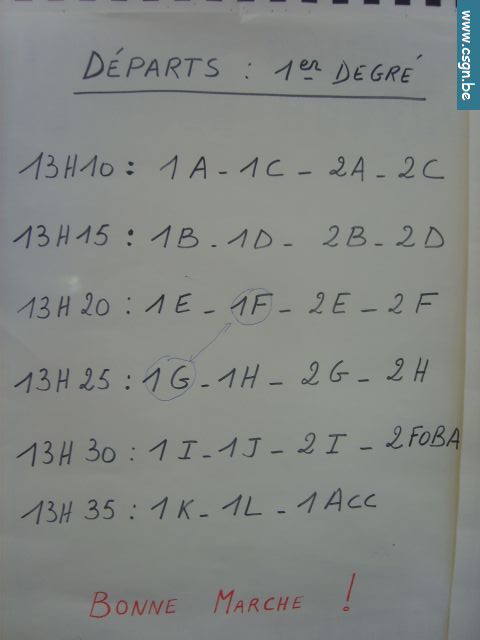 www.csgn.be
DÉPARTS : 1er DEGRÉ
13H10 : 1A - 1C - 2A - 2C
13H15 : 1B - 1D - 2B - 2D
13H20 : 1E - 1F - 2E - 2F
13H25 : 1G - 1H - 2G - 2H
13H30 : 1I - 1J - 2I - 2FOBA
13H35 : 1K - 1L - 1ACC
BONNE MARCHE !